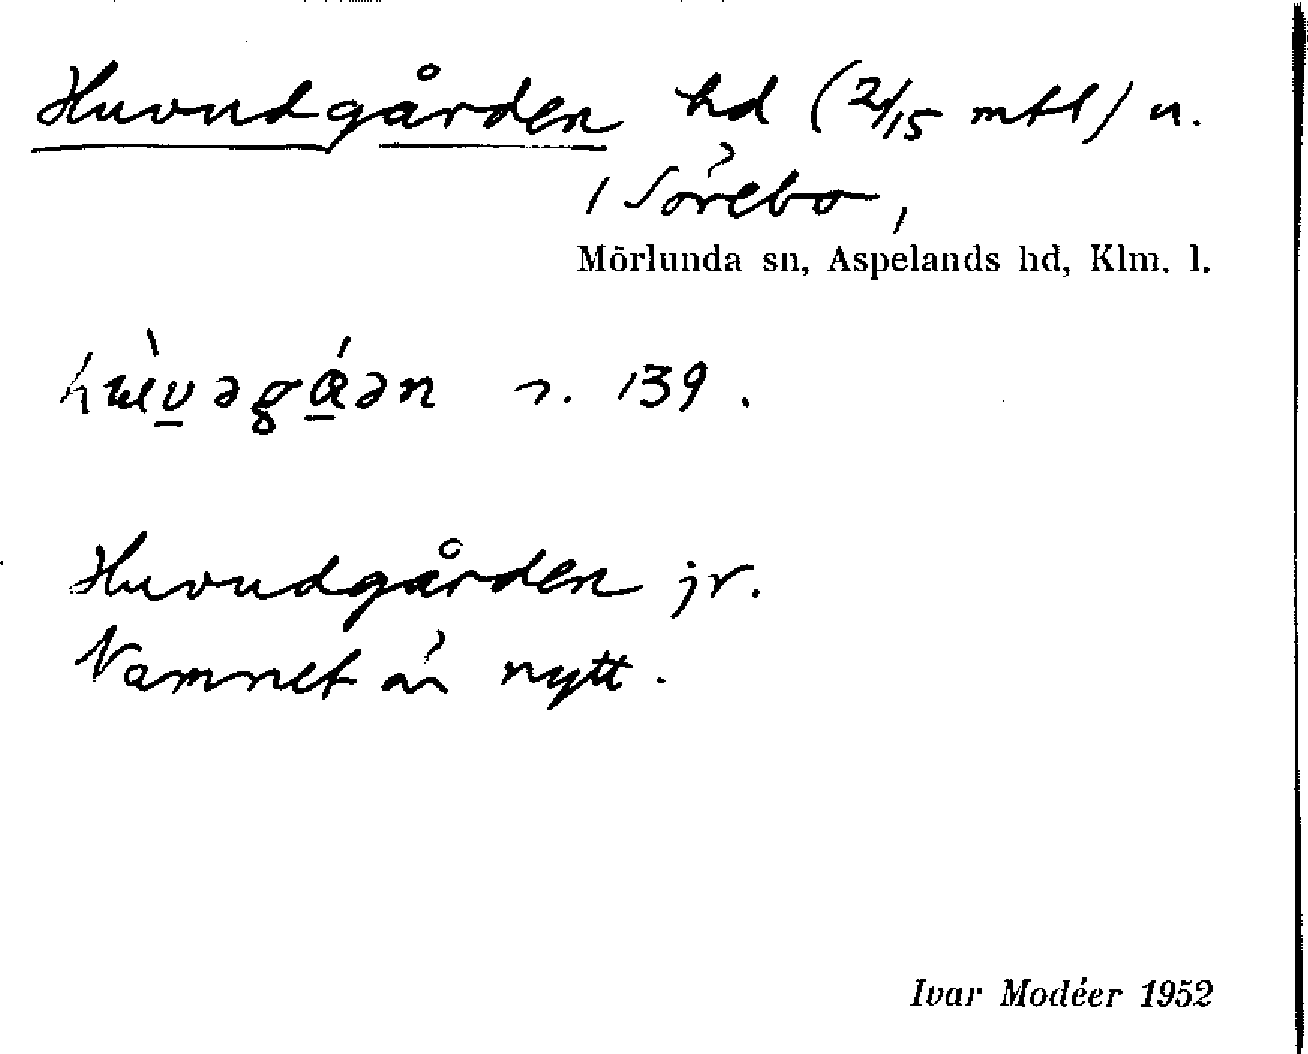 Huvudgården hd (2/15 mtl) n.
i Sörebo,
Mörlunda sn, Aspelands hd, Klm. l.
s. 139.
Huvudgården jr.
Namnet är nytt.
Ivar Modéer 1952